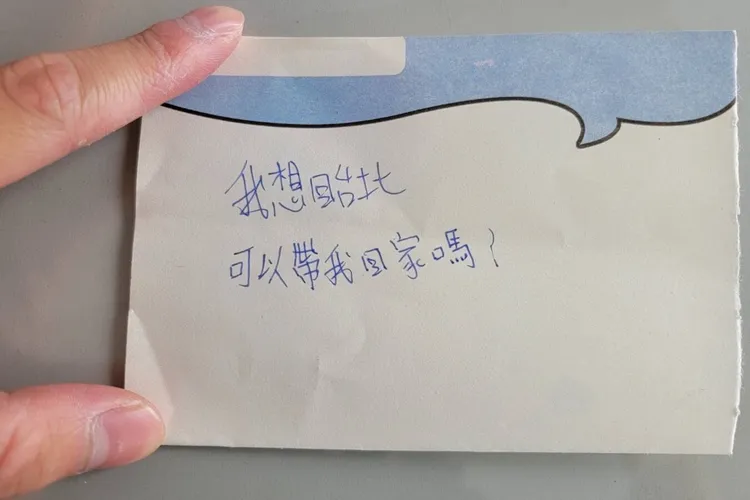 我想回台北
可以帶我回家嗎?